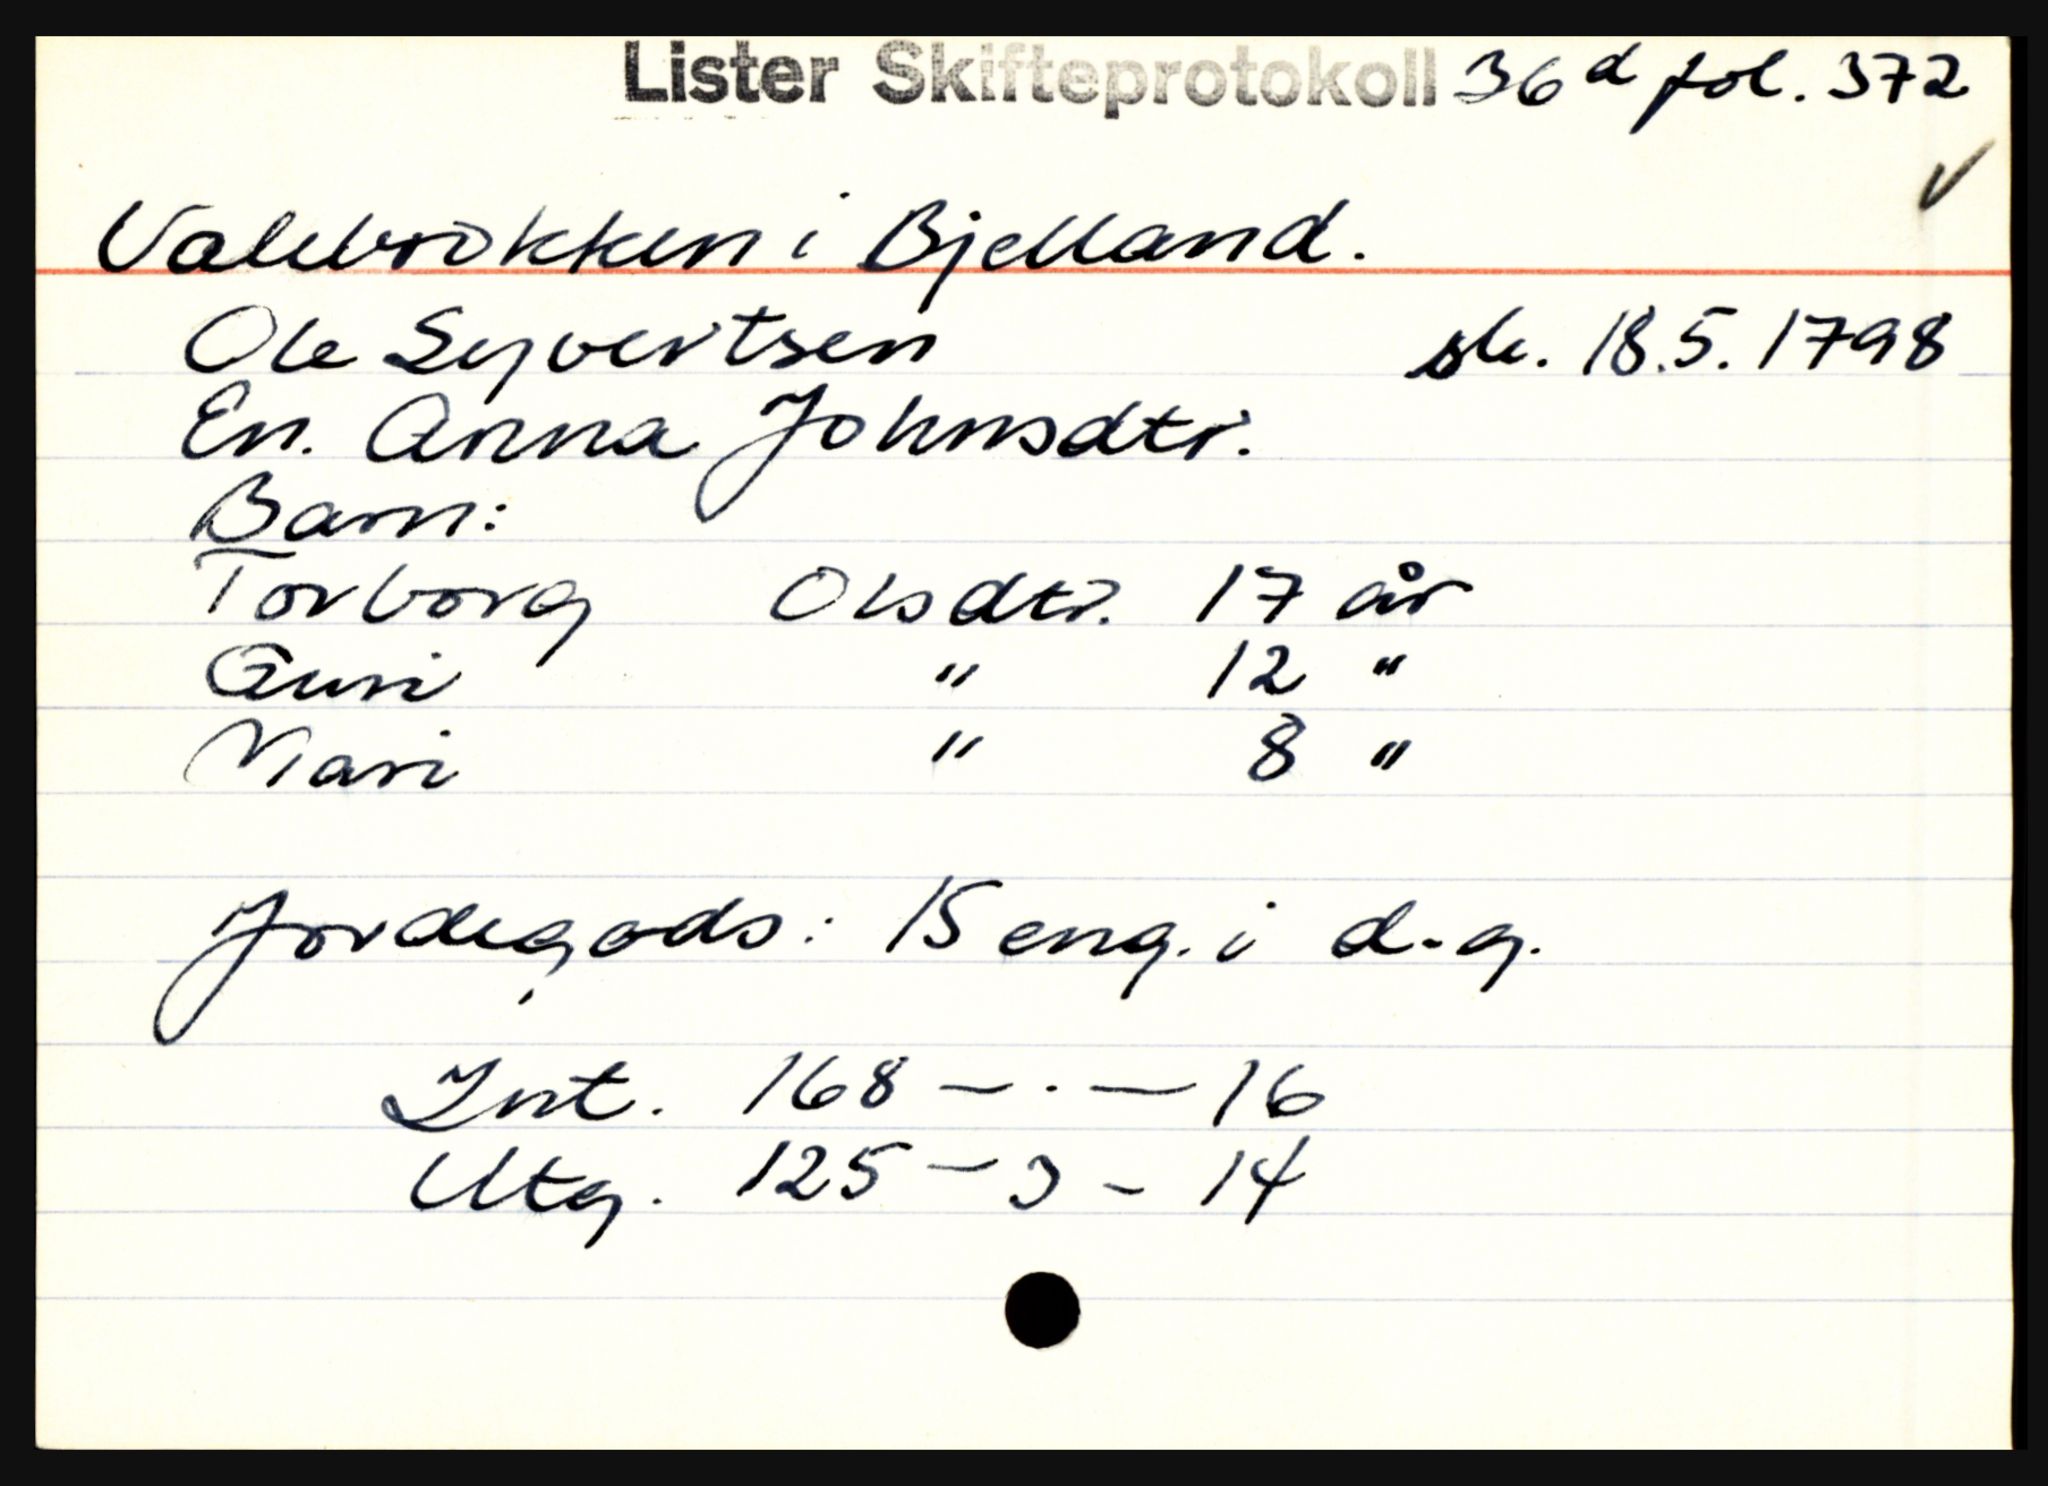 Lister Skifteprotokoll 36 d fol. 372
✓
Valebrokken i Bjelland.
Ole Syvertsen sk. 18.5.1798
En. Anna Johnsdtr.
Barn:
Torborg Olsdtr. 17 år
Guri " 12 "
Mari " 8 "
Jordegods: 15 eng. i d.g.
Int. 168 — . — 16
Utg. 125 — 3 - 14